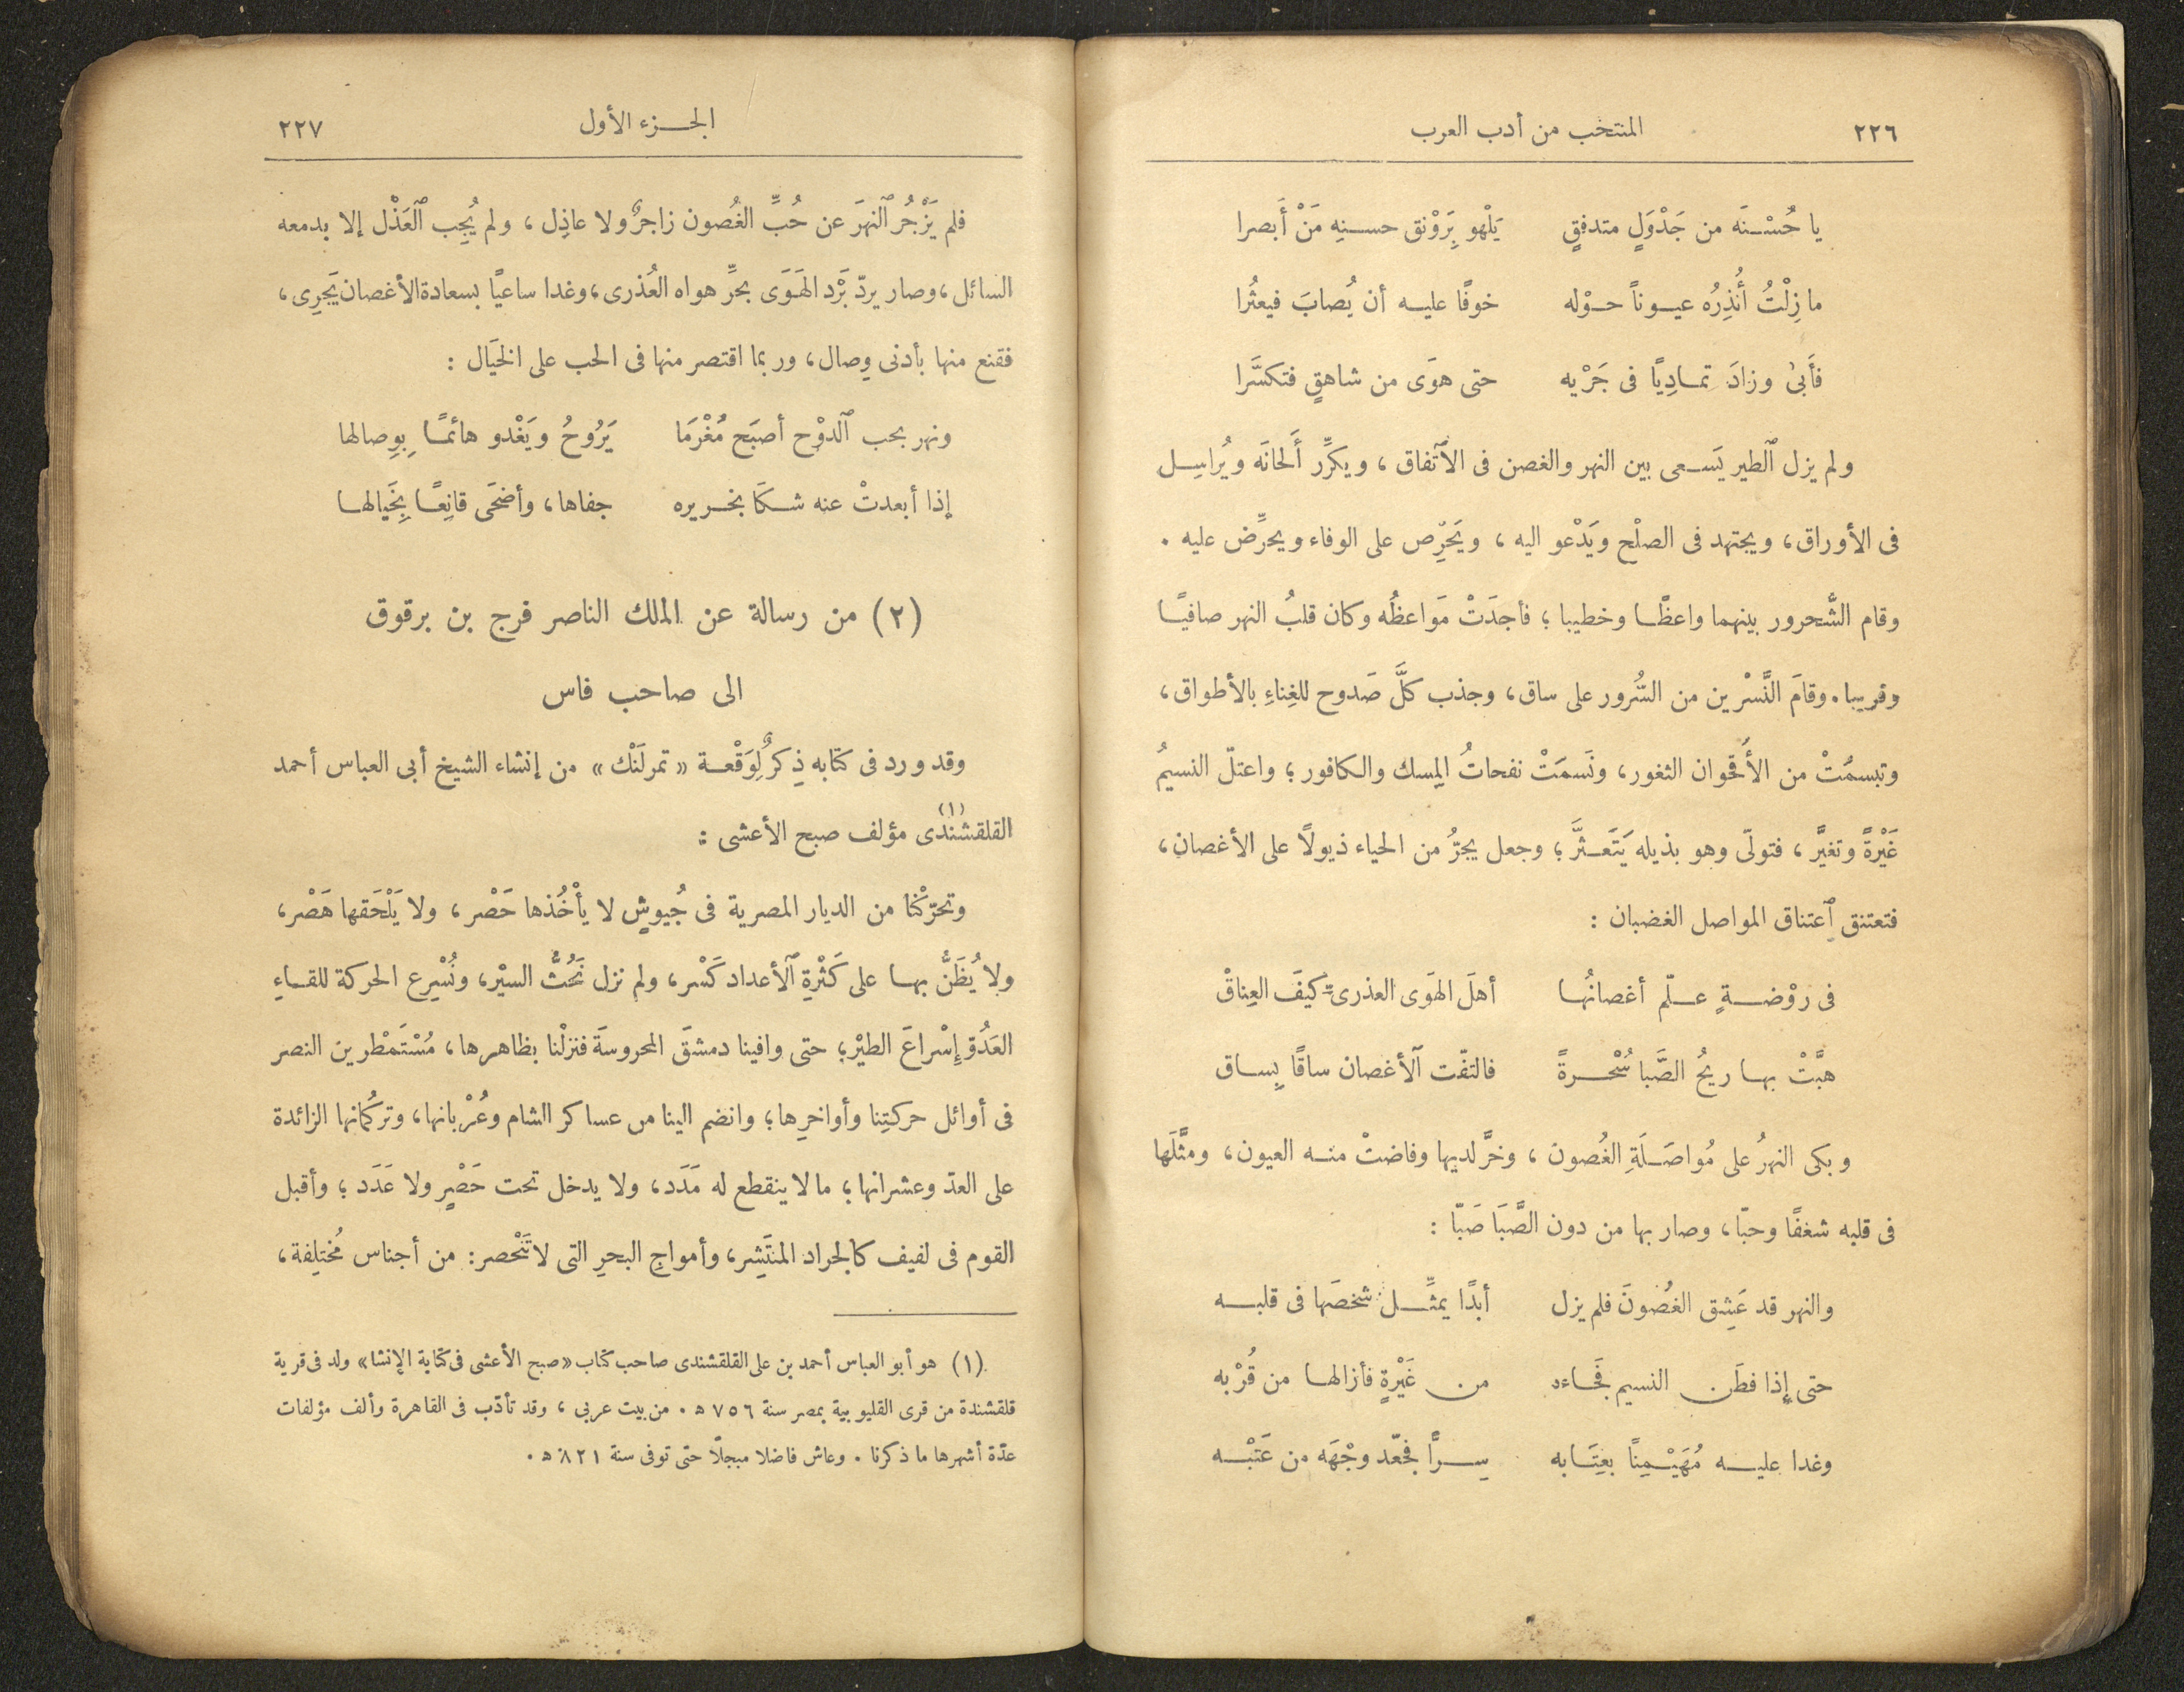 ٢٢٦ المنتخب من أدب العرب
يا حُسْنَه من جَدْوَلٍ متدفقٍ يَلْهو بِرَوْنق حسنِه مَنْ أَبصرا
ما زِلْتُ أُنذِرُه عيوناً حوْله خوفًا عليه أن يُصابَ فيعثُرا
فأَبىٰ وزادَ تماديًا فى جَرْيه حتى هوَى من شاهقٍ فتكسَّرا
ولم يزل ٱلطير يَسعى بين النهر والغصن فى الٱتفاق، ويكرِّر أَلحانَه ويُراسِل
فى الأوراق، ويجتهد فى الصلْح ويَدْعو اليه، ويَحْرِص على الوفاء ويحرِّض عليه .
وقام الشُّحرور بينهما واعظًا وخطيبا؛ فأجدَتْ مَواعظُه وكان قلبُ النهر صافيًا
وقريبا. وقامَ النَّسْرين من السُّرور على ساق، وجذب كلَّ صَدوح للغِناءِ بالأطواق،
وتبسمَتْ من الأُقحوان الثغور، ونَسمَتْ نفحاتُ المِسك والكافور؛ واعتلّ النسيمُ
غَيْرةً وتغيَّر، فتولّى وهو بذيله يَتَعثَّر؛ وجعل يجرّ من الحياء ذيولاً على الأغصان،
فتعتنق ٱعتناق المواصل الغضبان :
فى روْضةٍ علّم أغصانُها أهلَ الهَوَى العذرىّ كيفَ العِناقْ
هبَّتْ بها ريحُ الصَّبا سُحْرةً فالتفّت ٱلأغصان ساقًا بِساق
وبكى النهرُ على مُواصَلَةِ الغُصون، وخرَّ لديها وفاضتْ منه العيون، ومثَّلَها
فى قلبه شغفًا وحبّا، وصار بها من دون الصَّبَا صَبّا :
والنهر قد عَشِق الغُصُونَ فلم يزل أبدًا يمثِّل شخصَها فى قلبه
حتى إِذا فطَن النسيم فجَاءه من غَيْرةٍ فأزالها من قُرْبه
وغدا عليه مُهَيْمِنًا بعِتَابه سِرًّا فجعّد وجْهَه من عَتْبه
الجزء الأول ٢٢٧
فلم يَزْجُر ٱلنهرَ عن حُبِّ الغُصون زاجرٌ ولا عاذِل، ولم يُجِب ٱلعَذْل إلا بدمعه
السائل، وصار يردّ بَرْد الهَوَى بحرِّ هواه العُذرى، وغدا ساعيًا بسعادة الأغصان يَجرِى،
فقنع منها بأدنى وِصال، وربما اقتصر منها فى الحب على الخيَال :
ونهر بحب ٱلدوْح أصبَح مُغْرَما يَرُوحُ ويَغْدو هائمًا بِوِصالها
إذا أبعدتْ عنه شكَا بخريره جفاها، وأضحَى قانِعًا بِخَيالها
(٢) من رسالة عن الملك الناصر فرج بن برقوق
الى صاحب فاس
وقد ورد فى كتابه ذِكرٌ لِوَقْعة «تمرلَنْك» من إنشاء الشيخ أبى العباس أحمد
القلقشندى (١) مؤلف صبح الأعشى :
وتحرّكْنا من الديار المصرية فى جُيوشٍ لا يأْخُذها حَصْر، ولا يَلْحَقها هَصْر،
ولا يُظَنُّ بها على كَثْرةِ ٱلأعداد كَسْر، ولم نزل نَحُثُّ السيْر، ونُسْرِع الحركة للقاءِ
العَدُوّ إِسْراعَ الطيْر؛ حتى وافينا دمشقَ المحروسةَ فنزلْنا بظاهرها، مُسْتَمْطرين النصر
فى أوائل حركتِنا وأواخرِها؛ وانضم الينا من عساكر الشام وعُرْبانها، وتركُمانها الزائدة
على العدّ وعشرانها؛ ما لا ينقطع له مَدَد، ولا يدخل تحت حَصْرٍ ولا عَدَد؛ وأقبل
القوم فى لفيف كالجراد المنتَشِر، وأمواجِ البحرِ التى لا تَنْحصر: من أجناس مُختلِفة،
(١) هو أبو العباس أحمد بن على القلقشندى صاحب كتاب «صبح الأعشى فى كتابة الإنشا» ولد فى قرية
قلقشندة من قرى القليوبية بمصر سنة ٧٥٦ ه . من بيت عربى، وقد تأدّب فى القاهرة وألف مؤلفات
عدّة أشهرها ما ذكرنا . وعاش فاضلا مبجلًا حتى توفى سنة ٨٢١ ه .